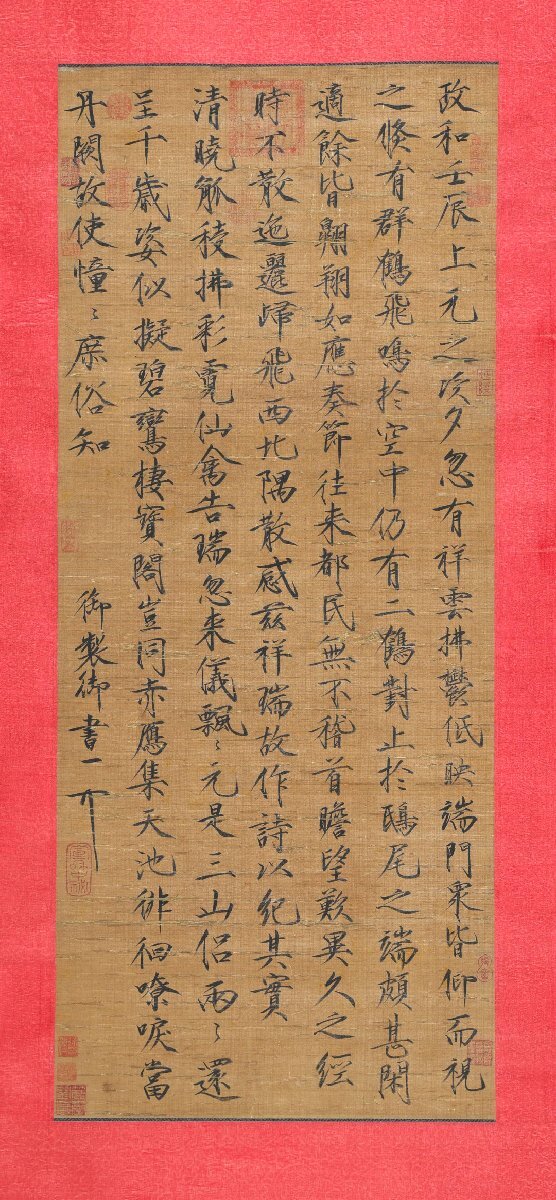 政和壬辰上元之次夕忽有祥雲拂鬱低映端門眾皆仰而視
之倏有群鶴飛鳴於空中仍有二鶴對止於鴟尾之端頗甚閑
適餘皆翱翔如應奏節往来都民無不稽首瞻望歎異久之經
時不散迤邐歸飛西北隅散感茲祥瑞故作詩以紀其實
清曉觚稜拂彩霓仙禽告瑞忽来儀飄〻元是三山侶兩〻還
呈千歲姿似擬碧鸞棲寶閣豈同赤應集天池徘徊嘹唳當
丹闕故使憧〻庶俗知
御製御書